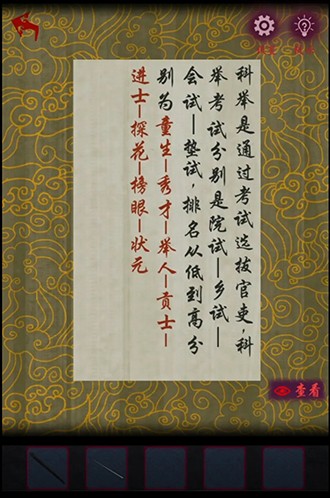 科举是通过考试选拔官吏,科
举考试分别是院试—乡试—
会试—垫试,排名从低到高分
别为童生—秀才—举人—贡士—
进士—探花—榜眼—状元
查看